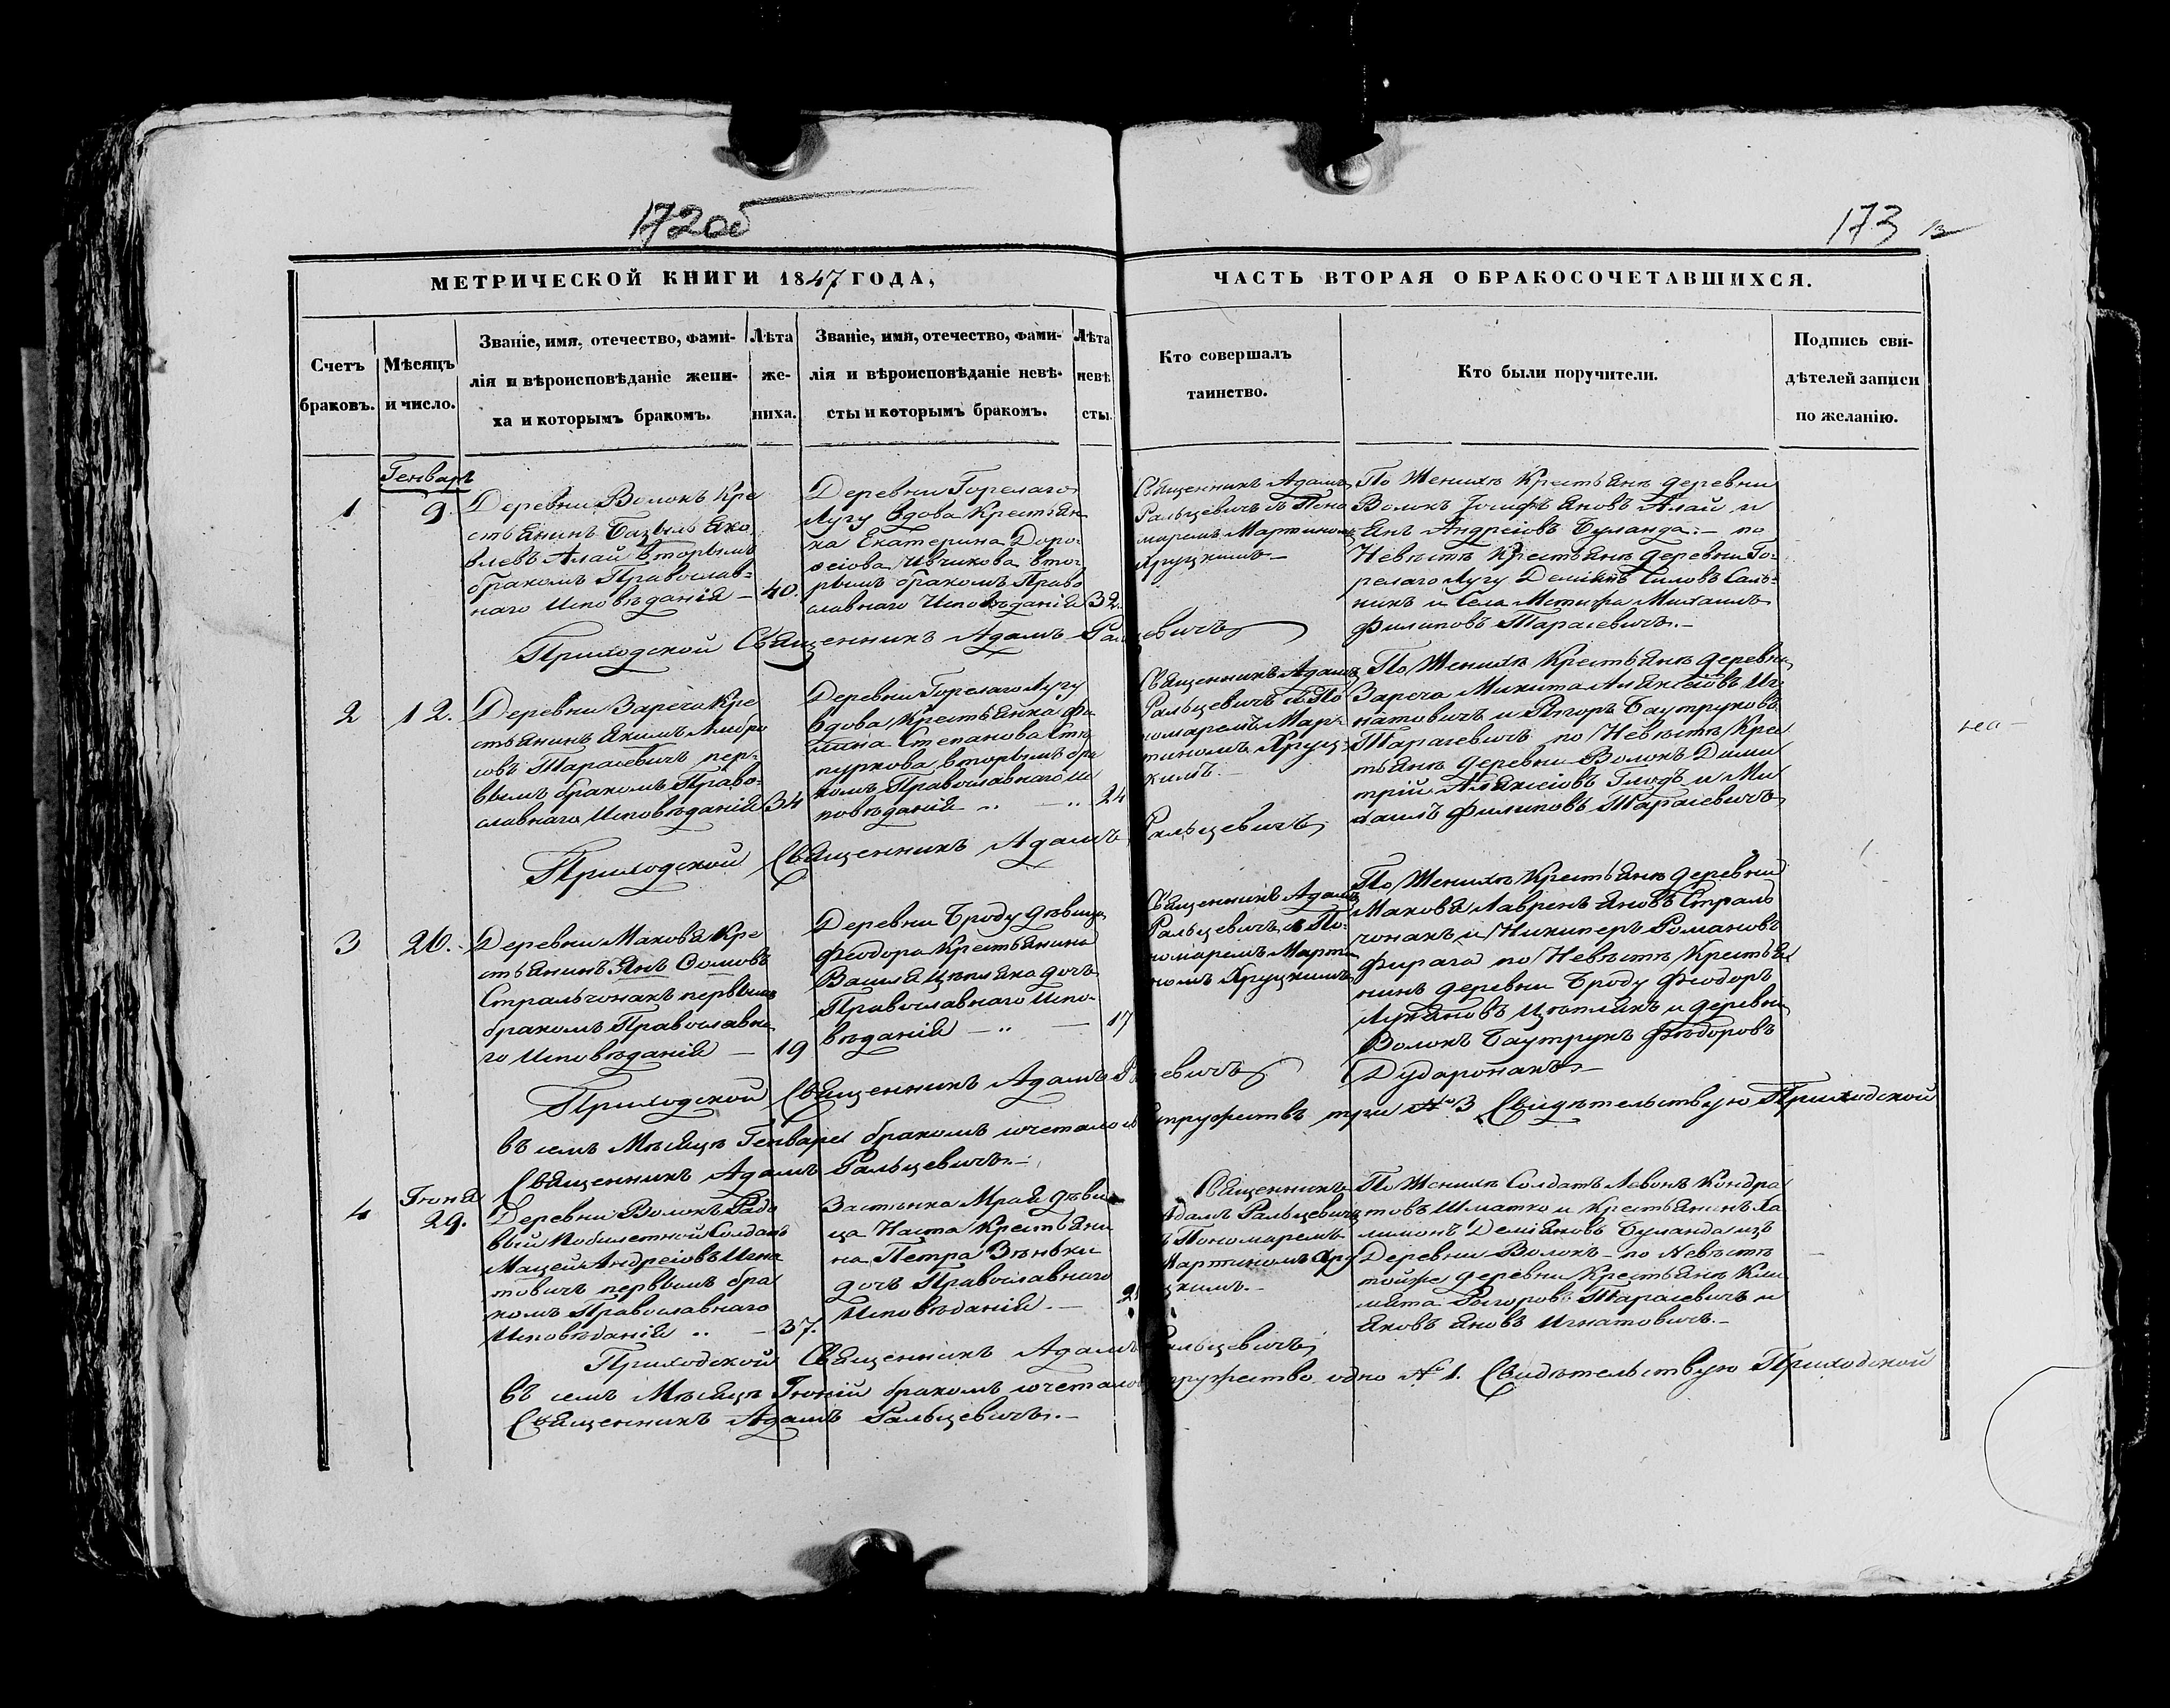 172об
173
МЕТРИЧЕСКОЙ КНИГИ 1847 ГОДА,
ЧАСТЬ ВТОРАЯ О БРАКОСОЧЕТАВШИХСЯ.
Счетъ
браковъ.
Мѣсяцъ
и число.
Званіе, имя, отечество, фами-
лія и вѣроисповѣданіе жени-
ха и которымъ бракомъ.
Лѣта
же-
ниха.
Званіе, имя, отечество, фами-
лія и вѣроисповѣданіе невѣ-
сты и которымъ бракомъ.
Лѣта
невѣ
сты.
Кто совершалъ
таинство.
Кто были поручители.
Подпись сви-
дѣтелей записи
по желанію.
Генварь
1
9
Деревни Волокъ Кре
стьянинъ Базыль Яко
влевъ Алай вторымъ
бракомъ Православ-
наго Исповѣданія –
40.
Деревни Горелаго
Лугу вдова Крестьян
ка Екатерина Доро-
ѳеіова Ивчикова вто-
рымъ бракомъ Право
славнаго Исповѣданія
32.
Священникъ Адамъ
Ральцевичъ съ Поно
маремъ Мартиномъ
Хруцкимъ –
По Женихѣ Крестьянѣ деревни
Волокъ Іосифъ Яновъ Алай и
Янъ Андреіовъ Буланда. – по
Невѣстѣ Крестьянѣ деревни Го-
релаго Лугу Деміянъ Силовъ Саль-
никъ и Села Мстижа Михаилъ
Филиповъ Тарасевичъ. –
Приходской Священникъ Адамъ Ральцевичъ
2
12.
Деревни Заречa Кре
стьянинъ Якимъ Амбро
совъ Тарасевичъ пер-
вымъ бракомъ Право-
славнаго Исповѣданія
34
Деревни Горелаго Лугу
вдова Крестьянка
Степанова
вторымъ бра
комъ Православнаго Ис
повѣданія – „ – „
24
Священникъ Адамъ
Ральцевичъ съ По
номаремъ Мар-
тиномъ Хруц-
кимъ. –
По Женихѣ Крестьянѣ деревни
Заречa Микита Аляксеіовъ Иг-
натовичъ и Рыгоръ Баутруковъ
Тарасевичъ по Невѣстѣ Кре
стьянѣ деревни Волокъ Дими
трій Аляксіовъ Глодъ и Ми
хаилъ Филиповъ Тарасевичъ
Приходской Священникъ Адамъ Ральцевичъ
3
26.
Деревни Макова Кре
стьянинъ Янъ Сомовъ
Стральчонакъ первымъ
бракомъ Православна
го Исповѣданія –
19
Деревни Броду дѣвица
Феодора Крестьянина
Василя Цѣпляка дочь
Православнаго Испо-
вѣданія – „ –
17
Священникъ Адамъ
Ральцевичъ съ По-
номаремъ Марти
номъ Хруцкимъ
По Женихѣ Крестьянѣ деревни
Макова Лавренъ Яновъ Страль
чонакъ и Никиперъ Романовъ
Фирага по Невѣстѣ Крестья
нинъ деревни Броду Феодоръ
Лукяновъ Цѣплякъ и деревни
Волокъ Баутрукъ Ѳеодоровъ
Дударонакъ –
Приходской Священникъ Адамъ Ральцевичъ
въ семъ Мѣсяцѣ Генваре бракомъ сочеталось супружествъ три № 3 Свидѣтельствую Приходской
Священникъ Адамъ Ральцевичъ. –
4
Іюня
29.
Деревни Волокъ Рядо
вый Побилетной Солдатъ
Мацей Андреіовъ Игна
товичъ первымъ бра
комъ Православнаго
Исповѣданія „ –
37.
Застѣнка Мрай дѣви
ца Наста Крестьяни
на Петра Зѣньки
дочь Православнаго
Исповѣданія. –
Священникъ
Адамъ Ральцевичъ
съ Пономаремъ
Мартиномъ Хру
цкимъ. –
По Женихѣ Солдатъ Левонъ Кондра
товъ Шматко и Крестьянинъ Ха
лимонъ Деміяновъ Буланда изъ
Деревни Волокъ – по Невѣстѣ
тойже деревни Крестьянѣ Кли
мята Рыгоровъ Тарасевичъ и
Яковъ Яновъ Игнатовичъ. –
Приходской Священникъ Адамъ Ральцевичъ
въ семъ Мѣсяцѣ Іюній бракомъ сочеталось супружество одно № 1. Свидѣтельствую Приходской
Священникъ Адамъ Ральцевичъ. –